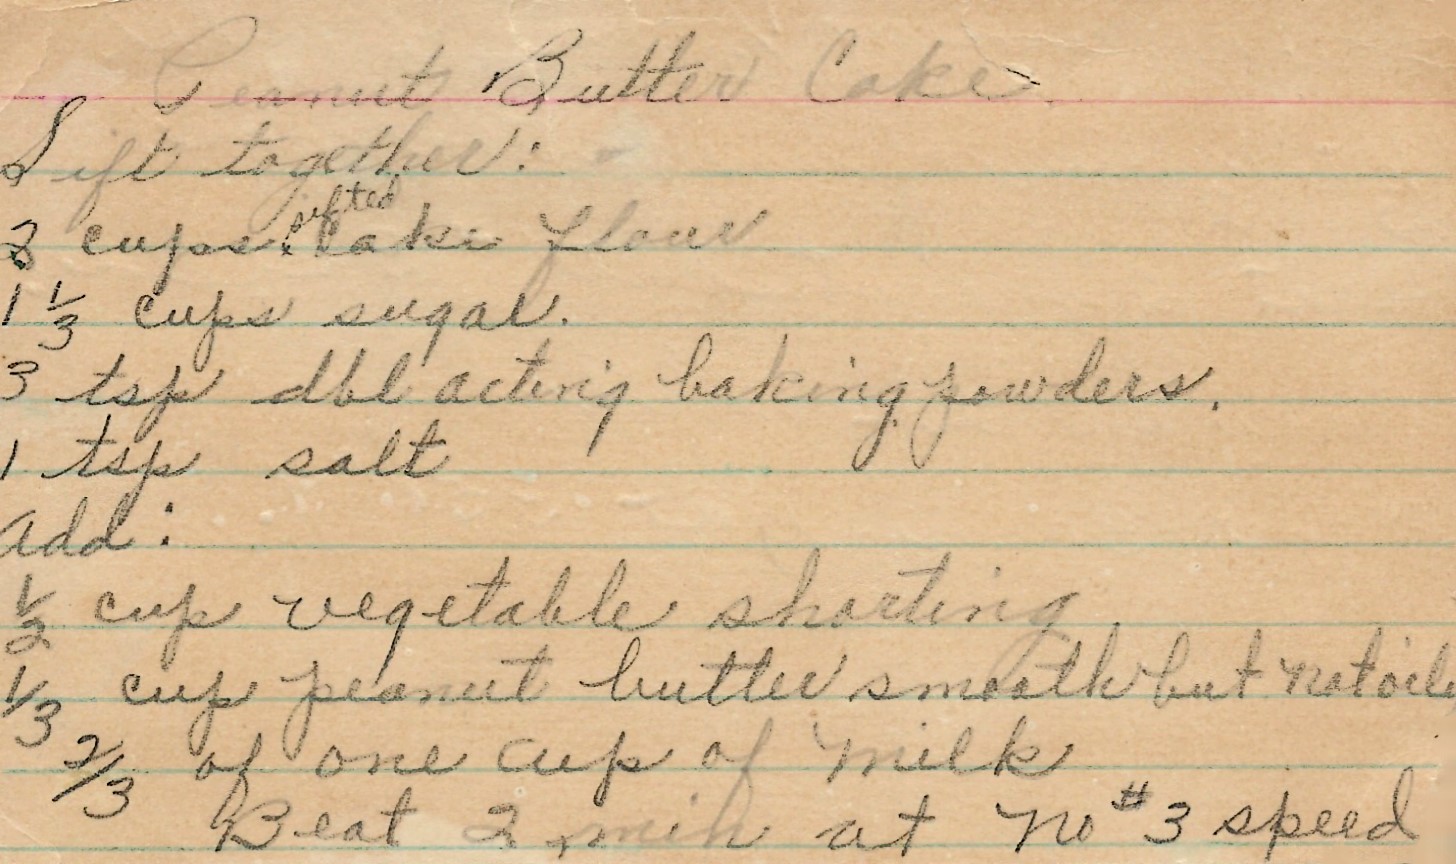 Peanut Butter Cake
Sift together:
2 cups sifted cake flour
1 1/3 cups sugar.
3 tsp dbl acting baking powders.
1 tsp salt
add:
1/2 cup vegetable shorting
1/3 cup peanut butter smooth but not oily
2/3 of one cup of milk
Beat 2 min at No #3 speed